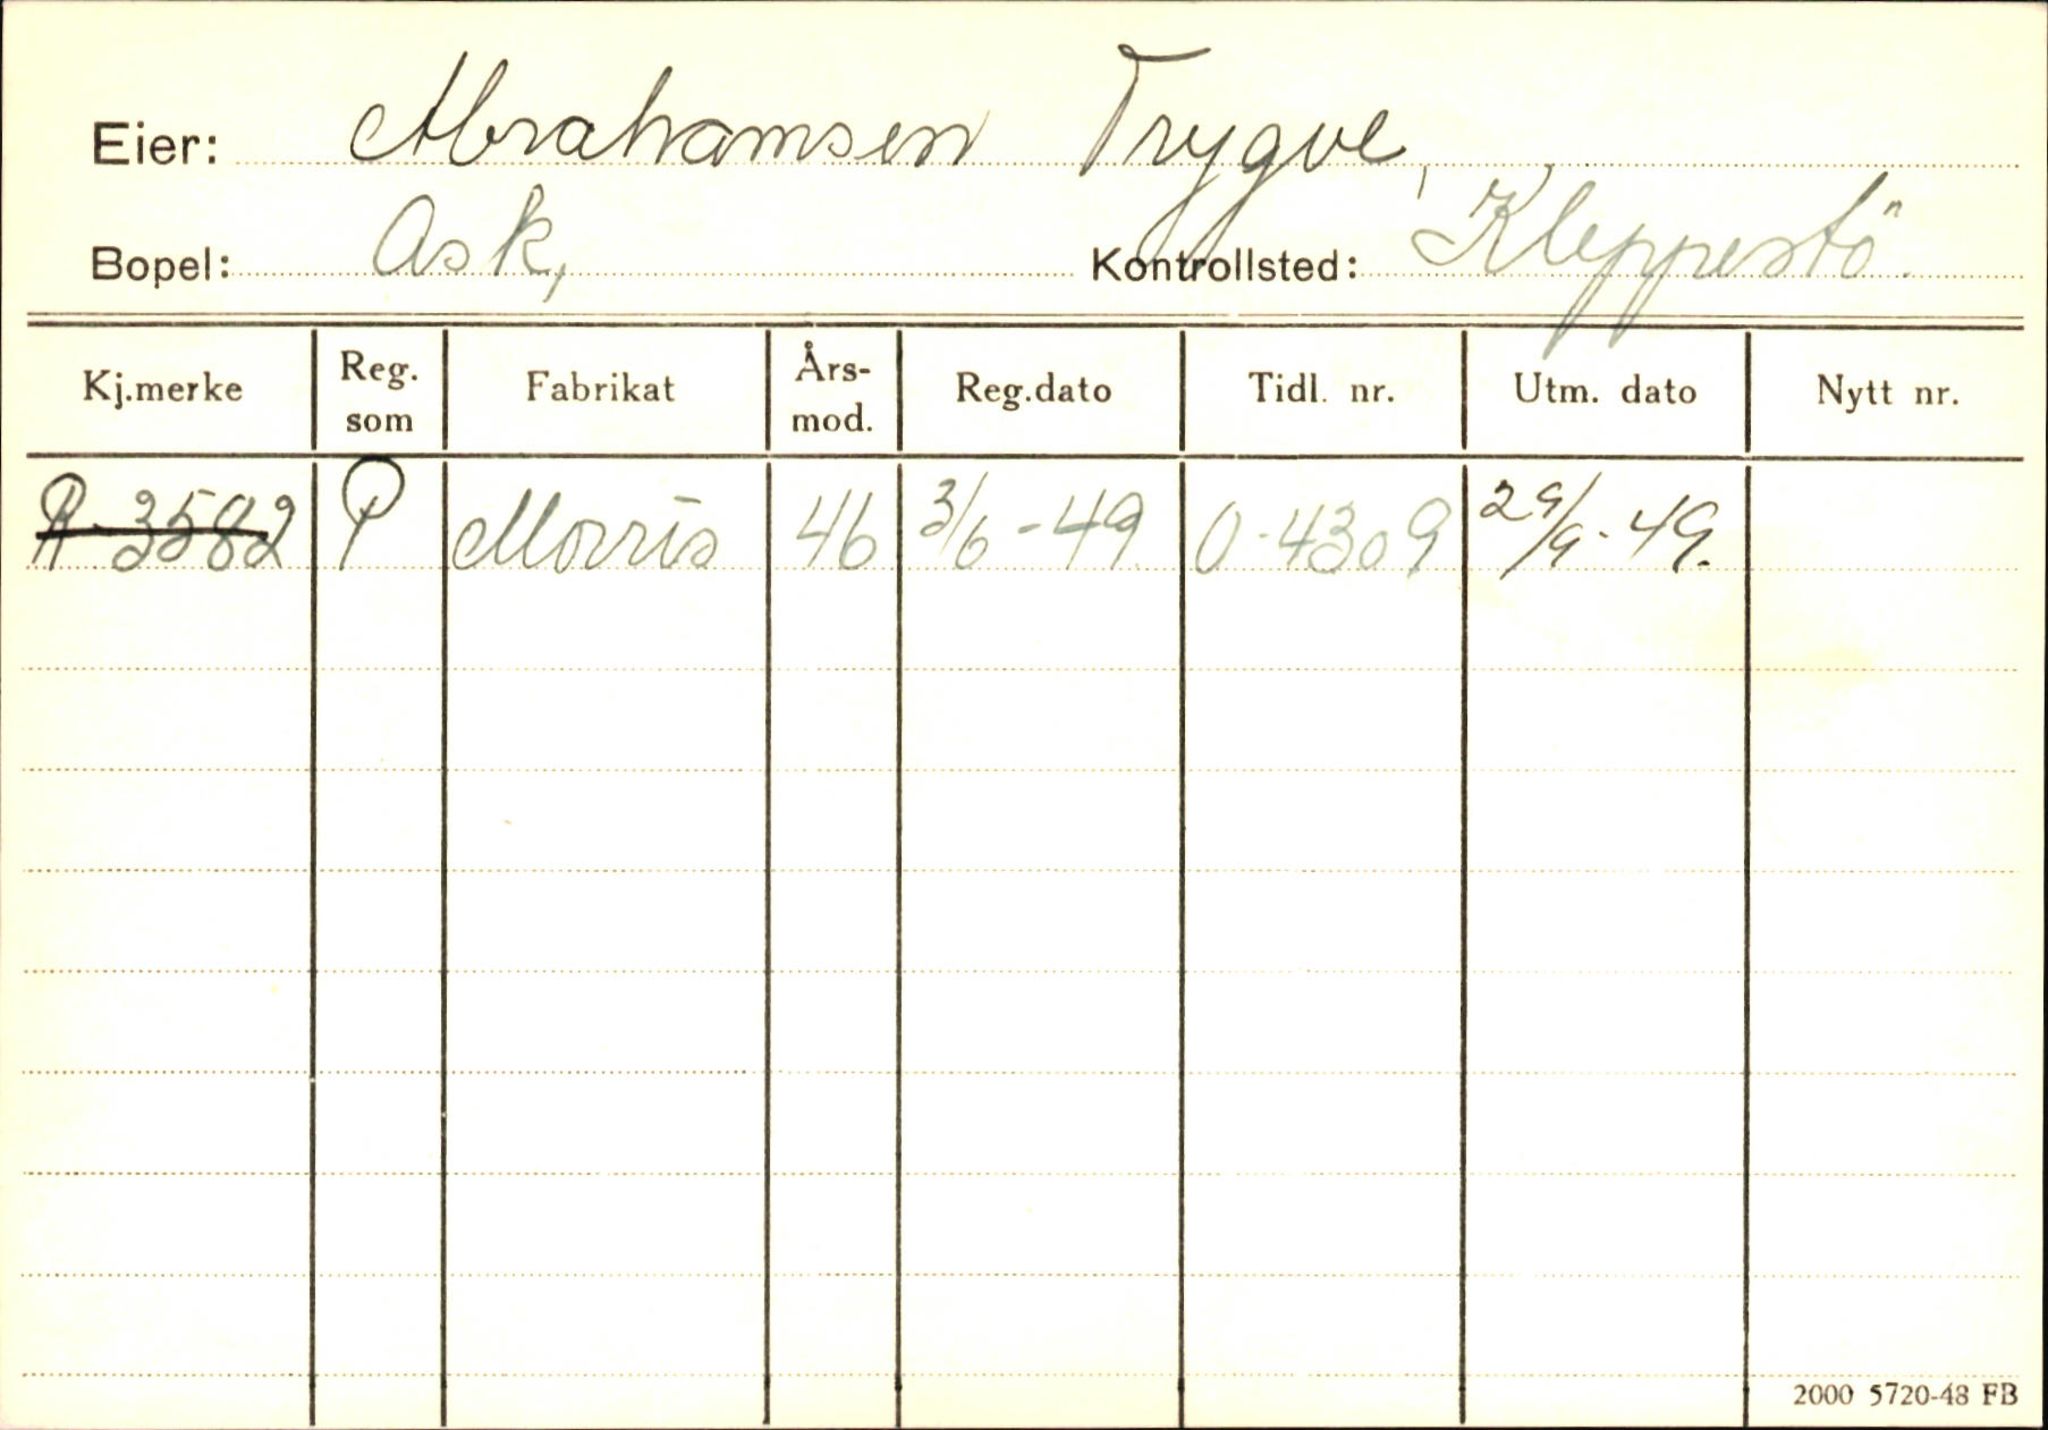 Eier: Abrahamsen Trygve,
Bopel: Ask, Kontrollsted: Kleppestö.
Kj.merke Reg. som Fabrikat Års-mod. Reg.dato Tidl. nr. Utm. dato Nytt nr.
R-3582 P Morris 46 3/6-49. O-4309 29/9-49.
2000 5720-48 FB